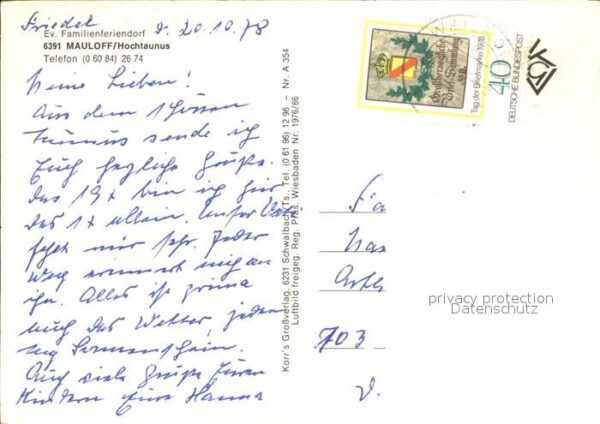 Friedel d. 20.10.78
Ev. Familienferiendorf
6391 MAULOFF/Hochtaunus
Telefon (0 60 84) 26 74
Meine Lieben!
Aus dem schönen
Taunus sende ich
Euch herzliche Grüße.
Das 19x bin ich hier
das 1x allein. Unser Vati
fehlt mir sehr. Jeder
Weg erinnert mich an
ihn. Alles ist prima
auch das Wetter, jeden
Tag Sonnenschein.
Auch viele Grüße Euren
Kindern Eure Hanna
Korr's Großverlag, 6231 Schwalbach/Ts., Tel. (0 61 96) 12 96 – Nr. A 354
Luftbild freigeg. Reg. Präs. Wiesbaden Nr. 1976/66
Großherzogliche
Post-Sammlung
Tag der Briefmarke 1978
40
DEUTSCHE BUNDESPOST
Fa
703
privacy protection
Datenschutz